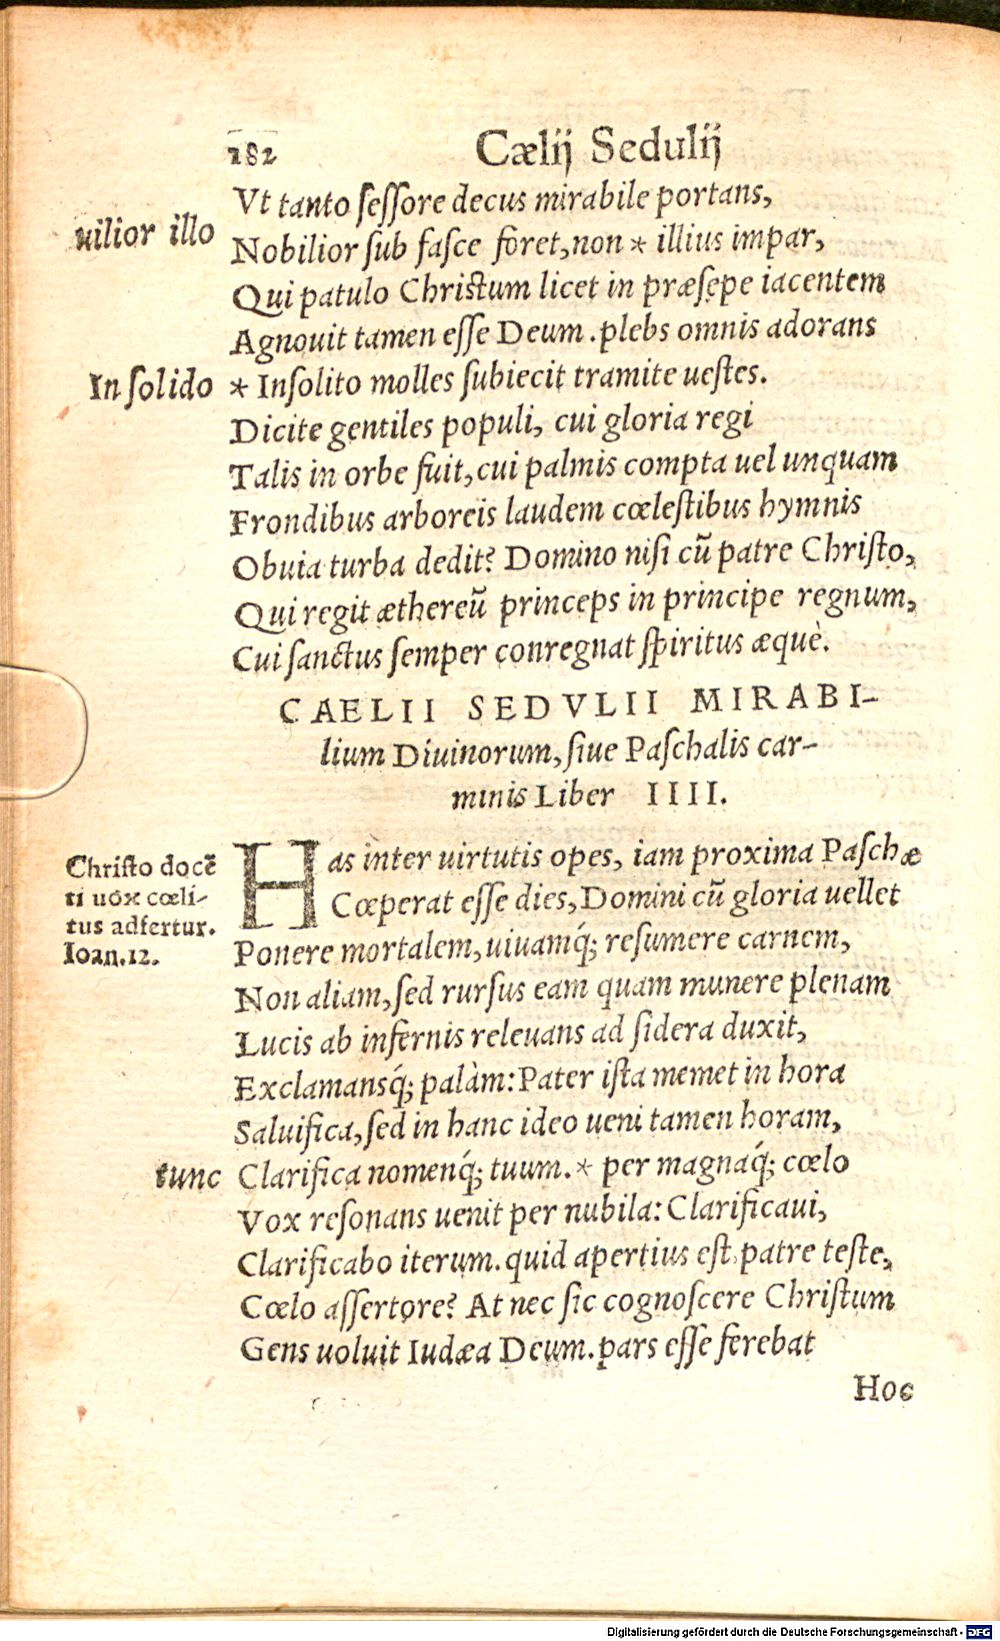 182 Cælij Sedulij
Vt tanto ſeſſore decus mirabile portans,
uilior illo
Nobilior ſub faſce foret, non * illius impar,
Qui patulo Chriſtum licet in præſepe iacentem
Agnouit tamen eſſe Deum. plebs omnis adorans
In ſolido
* Inſolito molles ſubiecit tramite ueſtes.
Dicite gentiles populi, cui gloria regi
Talis in orbe fuit, cui palmis compta uel unquam
Frondibus arboreis laudem cœleſtibus hymnis
Obuia turba dedit? Domino niſi cũ patre Chriſto,
Qui regit æthereũ princeps in principe regnum,
Cui ſanctus ſemper conregnat ſpiritus æquè.
CAELII SEDVLII MIRABI-
lium Diuinorum, ſiue Paſchalis car-
minis Liber IIII.
Chriſto docẽ
ti uox cœli-
tus adfertur.
Ioan.12.
Has inter uirtutis opes, iam proxima Paſchæ
Cœperat eſſe dies, Domini cũ gloria uellet
Ponere mortalem, uiuamq́; reſumere carnem,
Non aliam, ſed rurſus eam quam munere plenam
Lucis ab infernis releuans ad ſidera duxit,
Exclamansq́; palàm: Pater iſta memet in hora
Saluifica, ſed in hanc ideo ueni tamen horam,
tunc
Clarifica nomenq́; tuum. * per magnaq́; cœlo
Vox reſonans uenit per nubila: Clarificaui,
Clarificabo iterum. quid apertius eſt, patre teſte,
Cœlo aſſertore? At nec ſic cognoſcere Chriſtum
Gens uoluit Iudæa Deum. pars eſſe ferebat
Hoc
Digitalisierung gefördert durch die Deutsche Forschungsgemeinschaft - DFG